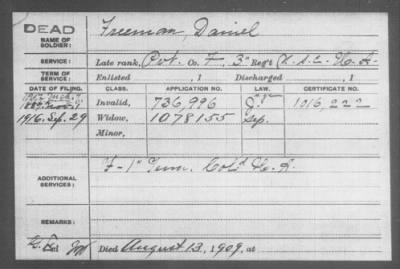 DEAD
NAME OF SOLDIER: Freeman, Daniel
SERVICE: Late rank, Pvt. Co. F, 3" Reg't U.S.C. H.A.
TERM OF SERVICE: Enlisted , 1 Discharged , 1
DATE OF FILING. CLASS. APPLICATION NO. LAW. CERTIFICATE NO.
Invalid, 736,996 1016,222
1916. Sep. 29 Widow, 1078155 Sep.
Minor,
ADDITIONAL SERVICES: F-1" Tenn. Col'd H.A.
REMARKS:
Died August 13, 1909, at